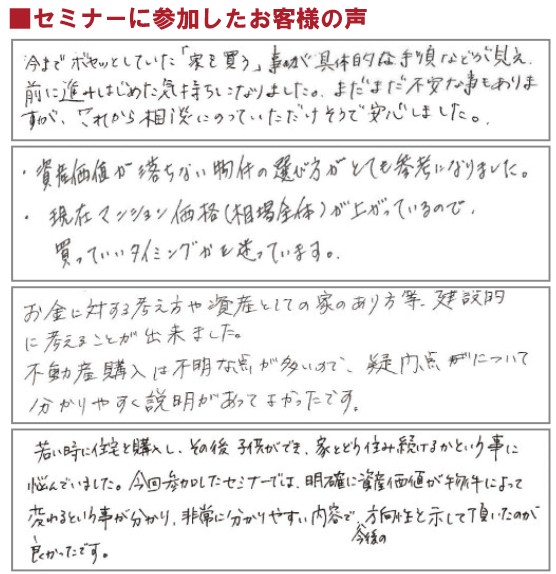 ■セミナーに参加したお客様の声
今までボヤッとしていた「家を買う」事が具体的な手順などが見え、
前に進みはじめた気持ちになりました。まだまだ不安な事もありま
すが、これから相談にのっていただけそうで安心しました。
・資産価値が落ちない物件の選び方がとても参考になりました。
・現在マンション価格(相場全体)が上がっているので、
買っていいタイミングかを迷っています。
お金に対する考え方や資産としての家のあり方等、建設的
に考えることが出来ました。
不動産購入は不明な点が多いので、疑問点について
分かりやすく説明があってよかったです。
若い時に住宅を購入し、その後子供ができ、家をどう住み続けるかという事に
悩んでいました。今回参加したセミナーでは、明確に資産価値が物件によって
変わるという事が分かり、非常に分かりやすい内容で、今後の方向性を示して頂いたのが
良かったです。